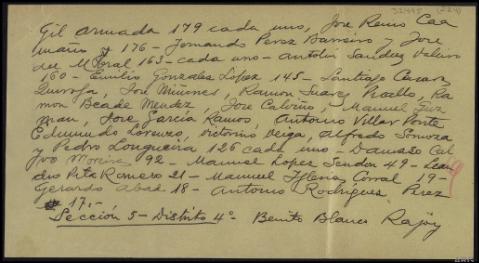 32445 (224)
Gil Armada 179 cada uno, Jose Reino Caa
maño y 176 - Fernando Perez Barreiro y Jose
del Moral 163 - cada uno - Antolin Sanchez Valeiro
160 - Emilio Gonzalez López 145 - Santiago Casares
Quiroga, Jose Miñones, Ramon Suarez Picallo, Ra
mon Beade Mendez, Jose Calviño, Manuel Guz
man, Jose Garcia Ramos, Antonio Villar Ponte
Edmundo Lorenzo, Victorino Veiga, Alfredo Somoza
y Pedro Longueira 126 cada uno - Damaso Cal
vo Moreiras 92 - Manuel Lopez Sendon 49 - Lean
dro Pita Romero 21 - Manuel Iglesias Corral 19 -
Gerardo Abad 18 - Antonio Rodriguez Perez
17.-
Sección 5 - Distrito 4º - Benito Blanco Rajoy